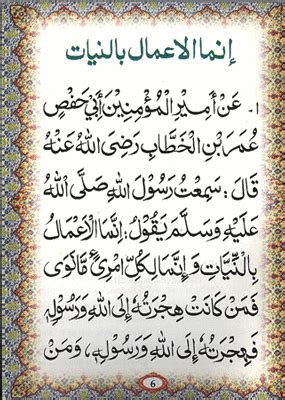 إنما الاعمال بالنيات
١- عَنْ أَمِيْرِ الْمُؤْمِنِيْنَ أَبِيْ حَفْصٍ
عُمَرَ بْنِ الْخَطَّابِ رَضِىَ اللهُ عَنْهُ
قَالَ: سَمِعْتُ رَسُوْلَ اللهِ صَلَّى اللهُ
عَلَيْهِ وَسَلَّمَ يَقُوْلُ: إِنَّمَا الْاَعْمَالُ
بِالنِّيَّاتِ وَإِنَّمَا لِكُلِّ امْرِئٍ مَّانَوٰى
فَمَنْ كَانَتْ هِجْرَتُهٗ إِلَى اللهِ وَرَسُوْلِهٖ
فَهِجْرَتُهٗ إِلَى اللهِ وَرَسُوْلِهٖ، وَمَنْ
6